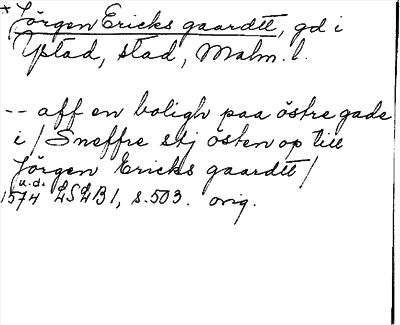 * Jörgen Ericks gaardtt, gd i
Ystad, stad, Malm. l.
-- aff en boligh paa östre gade
i / Sneffre stj östen op till
Jörgen Ericks gaardtt /
u.d.
1574 LSLB 1, s. 503. orig.